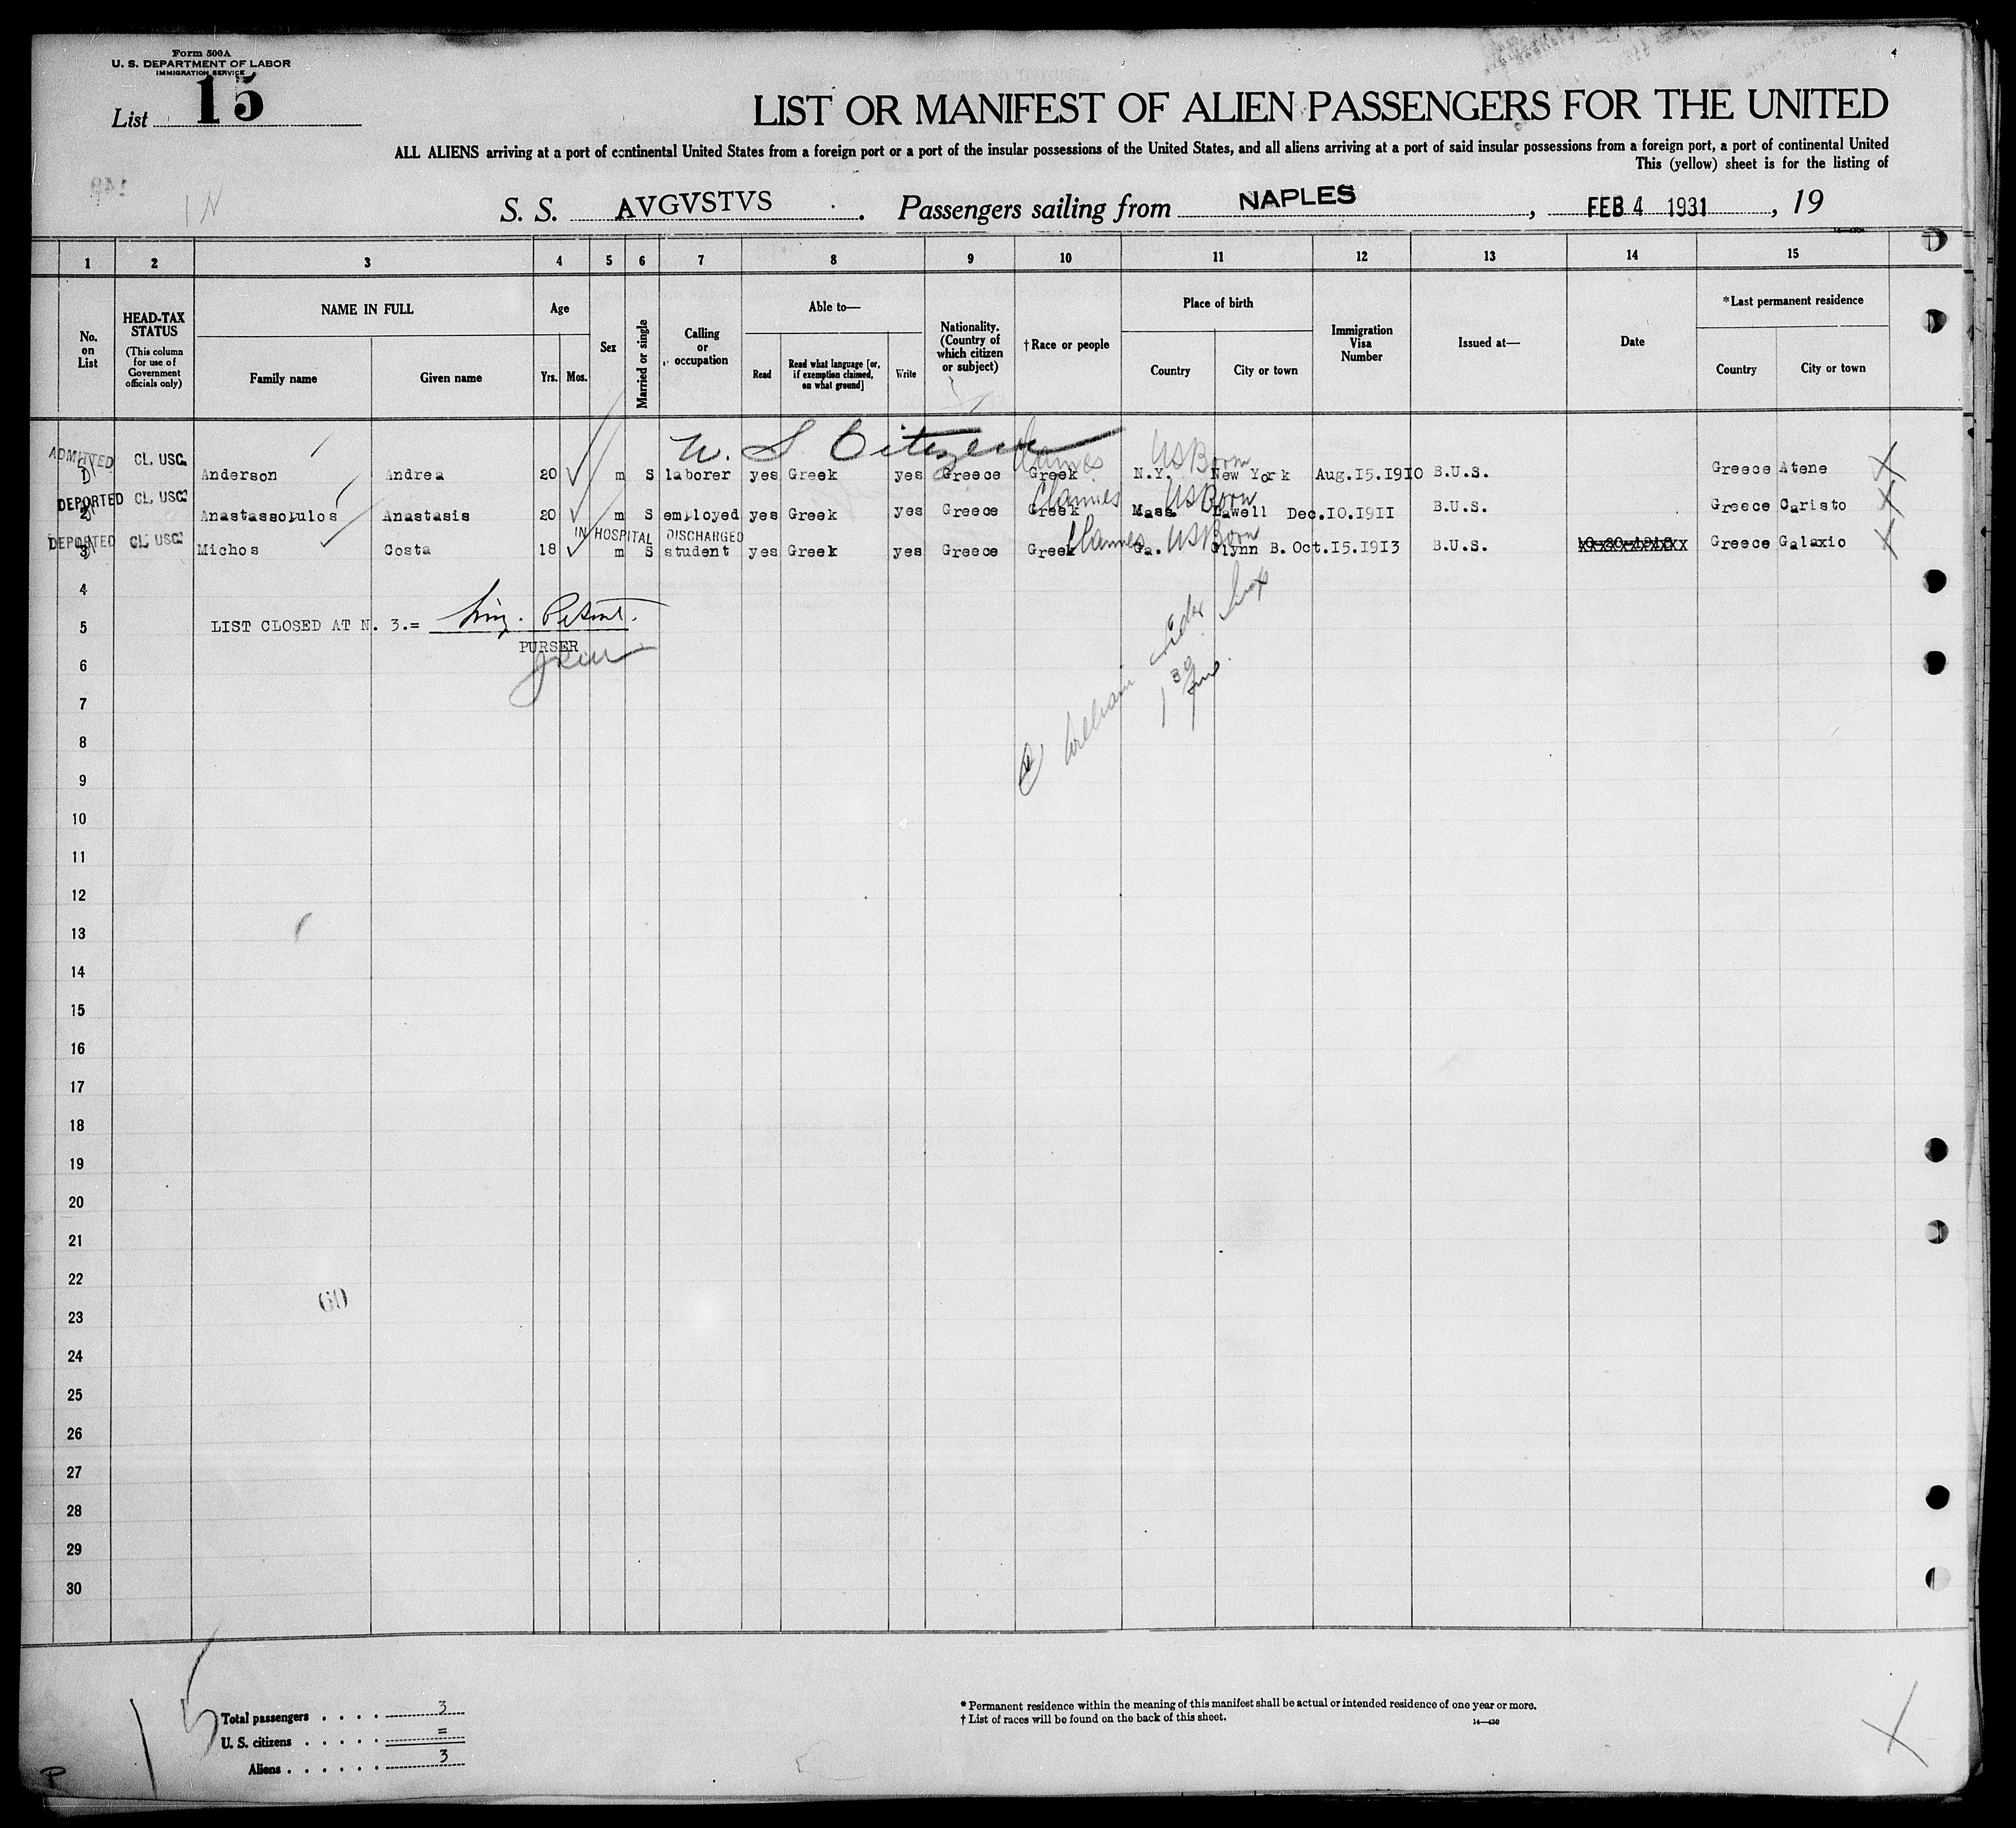 Form 500A
U. S. DEPARTMENT OF LABOR
IMMIGRATION SERVICE
List 15
LIST OR MANIFEST OF ALIEN PASSENGERS FOR THE UNITED
ALL ALIENS arriving at a port of continental United States from a foreign port or a port of the insular possessions of the United States, and all aliens arriving at a port of said insular possessions from a foreign port, a port of continental United
This (yellow) sheet is for the listing of
S. S. AVGVSTVS . Passengers sailing from NAPLES , FEB 4 1931 , 19
1 2 3 4 5 6 7 8 9 10 11 12 13 14 15
No. on List
HEAD-TAX STATUS
(This column for use of Government officials only)
NAME IN FULL
Family name Given name
Age
Yrs. Mos.
Sex
Married or single
Calling or occupation
Able to—
Read
Read what language [or, if exemption claimed, on what ground]
Write
Nationality. (Country of which citizen or subject)
†Race or people
Place of birth
Country City or town
Immigration Visa Number
Issued at—
Date
*Last permanent residence
Country City or town
U. S Citizen
ADMITTED CL. USC. Claims US Born
1 Anderson Andrea 20 m S laborer yes Greek yes Greece Greek N.Y. New York Aug.15.1910 B.U.S. Greece Atene X
DEPORTED CL. USC. Claims US Born
2 Anastassopulos Anastasis 20 m S employed yes Greek yes Greece Greek Mass. Lawell Dec.10.1911 B.U.S. Greece Caristo X
IN HOSPITAL DISCHARGED
DEPORTED CL. USC. Claims US Born
3 Michos Costa 18 m S student yes Greek yes Greece Greek Ga. Glynn B. Oct.15.1913 B.U.S. Greece Galaxio X
4
5 LIST CLOSED AT N. 3.=
PURSER
6
7
8
9
10
11
12
13
14
15
16
17
18
19
20
21
22
23
24
25
26
27
28
29
30
60
15
Total passengers . . . . 3
U. S. citizens . . . . . =
Aliens . . . . . . 3
* Permanent residence within the meaning of this manifest shall be actual or intended residence of one year or more.
† List of races will be found on the back of this sheet.
14—430
X
P